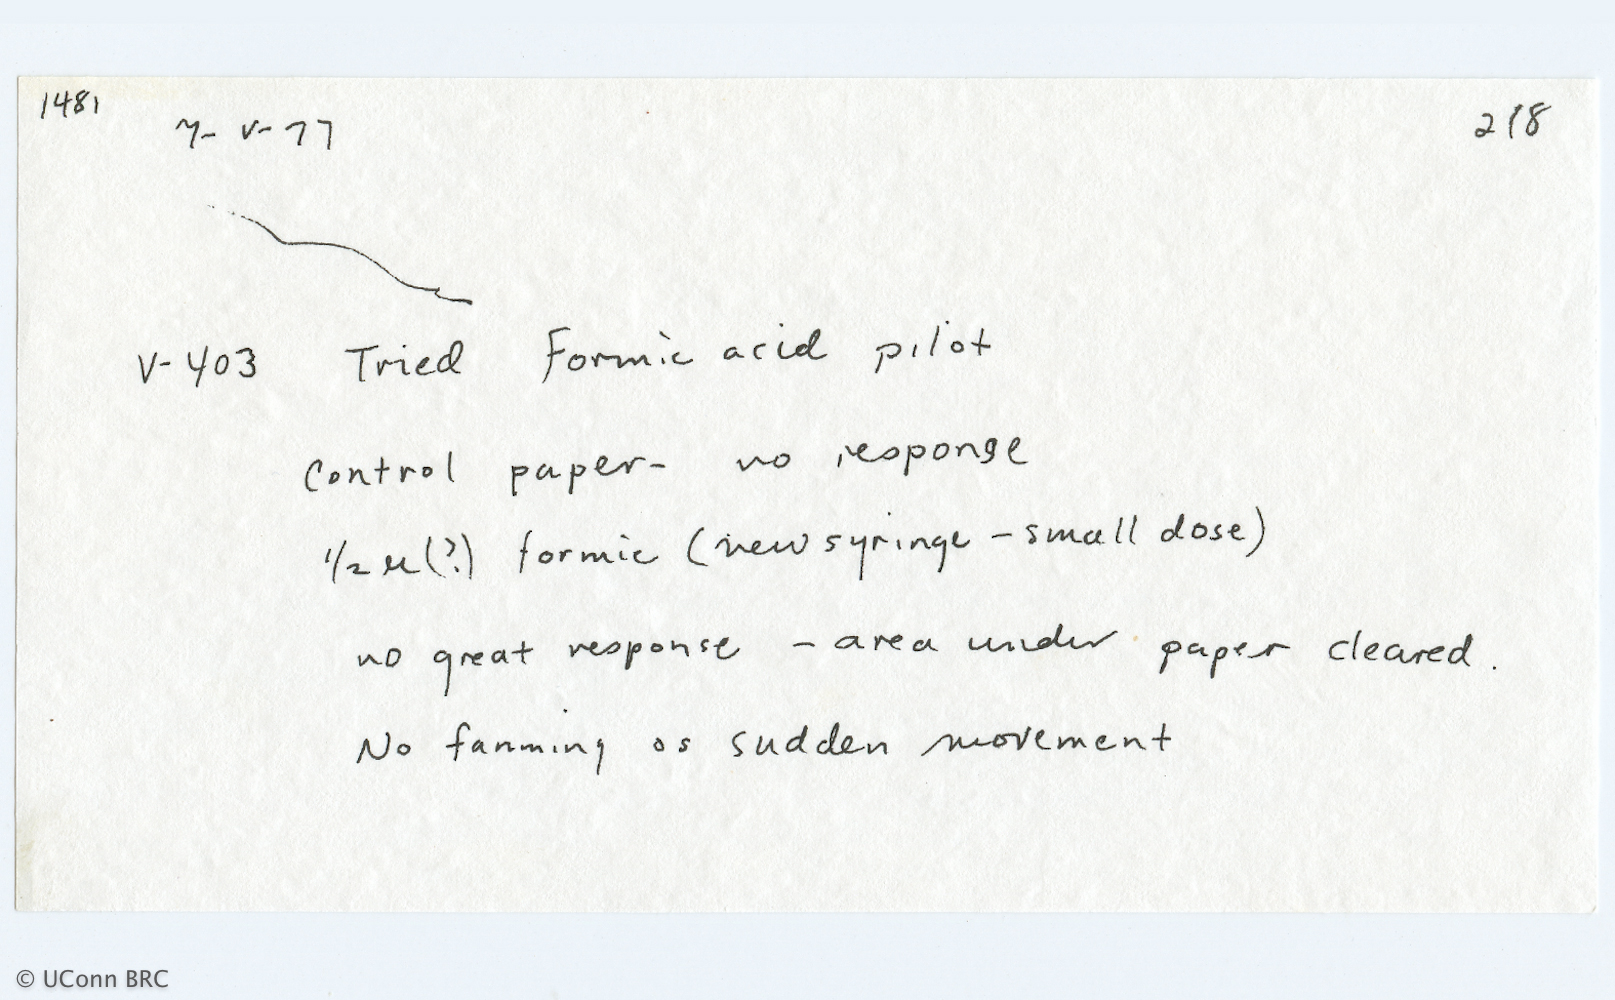 1481
7-V-77
218
V-403 Tried Formic acid pilot
Control paper- no response
1/2 µ(?) formic (new syringe - small dose)
no great response - area under paper cleared.
No fanning or sudden movement
© UConn BRC